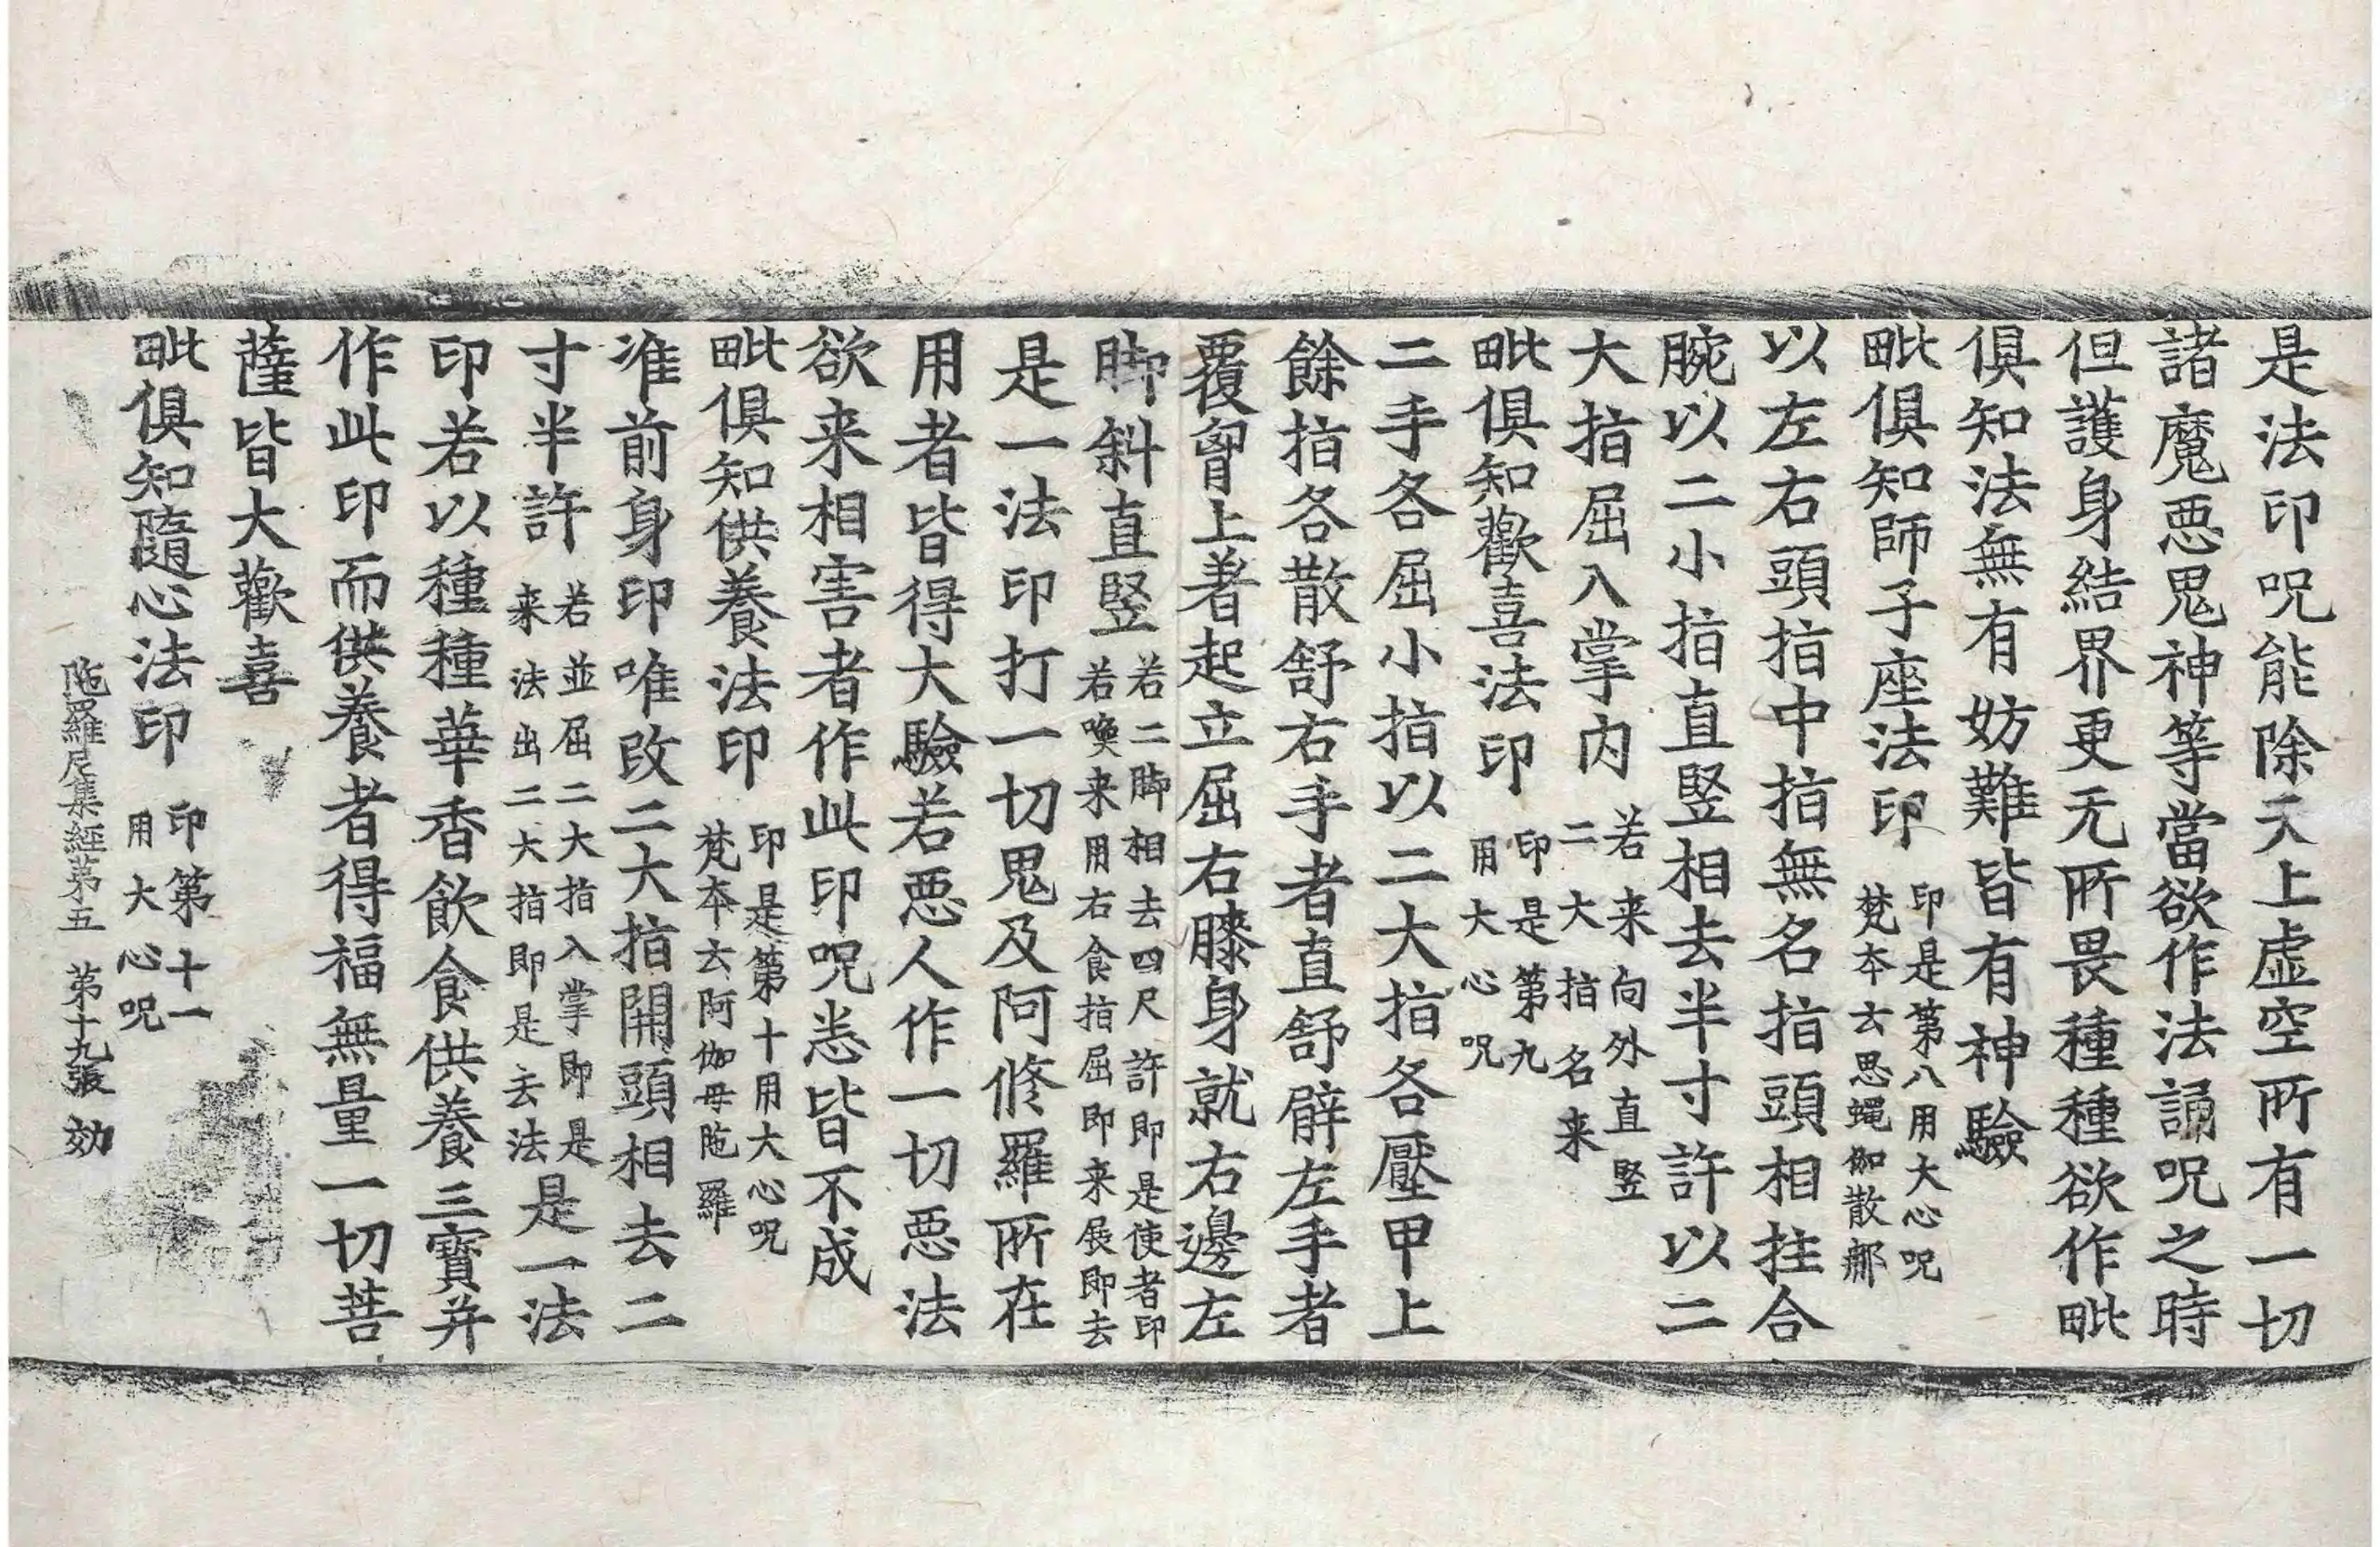 是法印呪能除天上虛空所有一切
諸魔惡鬼神等當欲作法誦呪之時
但護身結界更无所畏種種欲作毗
俱知法無有妨難皆有神驗
毗俱知師子座法印 印是第八用大心呪 梵本云思蠅伽散那
以左右頭指中指無名指頭相拄合
腕以二小指直豎相去半寸許以二
大指屈入掌內 若来向外直豎 二大指名来
毗俱知歡喜法印 印是第九 用大心呪
二手各屈小指以二大指各壓甲上
餘指各散舒右手者直舒臂左手者
覆胷上著起立屈右膝身就右邊左
脚斜直豎 若二脚相去四尺許即是使者印 若喚来用右食指屈即来展即去
是一法印打一切鬼及阿修羅所在
用者皆得大驗若惡人作一切惡法
欲来相害者作此印呪悉皆不成
毗俱知供養法印 印是第十用大心呪 梵本云阿伽母陁羅
准前身印唯改二大指開頭相去二
寸半許 若並屈二大指入掌即是 来法出二大指即是去法 是一法
印若以種種華香飲食供養三寶并
作此印而供養者得福無量一切菩
薩皆大歡喜
毗俱知隨心法印 印第十一 用大心呪
陁羅尼集經第五 第十九張 効